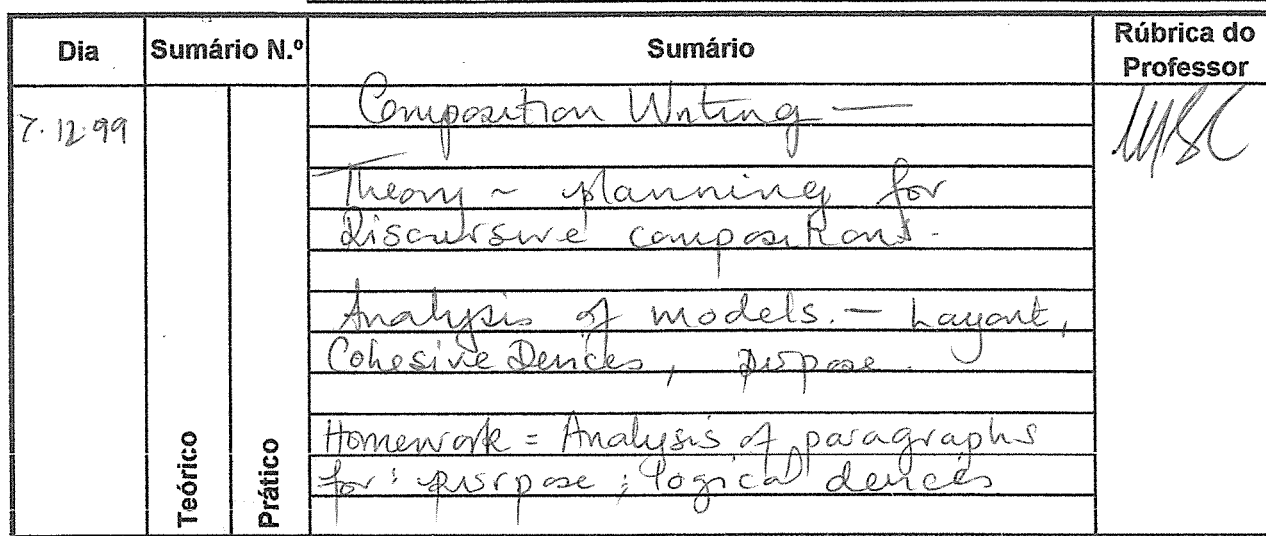 Dia Sumário N.º Sumário Rúbrica do Professor
7.12.99
Composition Writing —
Theory ~ planning for
Discursive compositions.
Analysis of models. — Layout,
Cohesive Devices, purpose.
Homework = Analysis of paragraphs
for: purpose; logical devices
Teórico
Prático